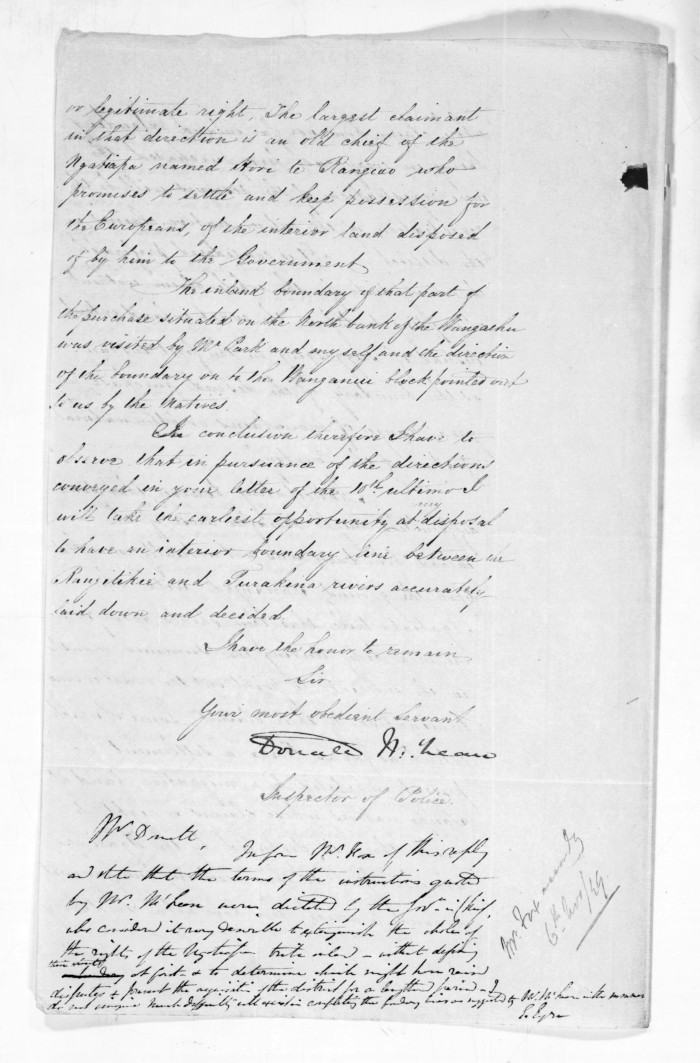 or legitimate right, The largest claimant
in that direction is an old chief of the
Ngatiapa named Hori te Rangiao who
promises to settle and keep possession for
the Europeans, of the interior land disposed
of by him to the Government
The inland boundary of that part of
the purchase situated on the North bank of the Wangaehu
was visited by Mr Park and myself and the direction
of the boundary on to the Wanganui block pointed out
to us by the Natives.
In conclusion therefore I have to
observe that in pursuance of the directions
conveyed in your letter of the 10th ultimo I
will take the earliest opportunity at my disposal
to have an interior boundary line between the
Rangitikie and Turakina rivers accurately
laid down and decided
I have the honor to remain
Sir
Your most obedient Servant
Donald McLean
Inspector of Police
Inform Mr Fox of this reply
and state that the terms of the instructions quoted
by Mr McLean were dictated by the Govr in Chief,
who considered it very desirable to extinguish the whole of
the rights of the Ngatiapa tribe
at first & to determine which might have raised
disputes & prevent the acquisition of the district for a lengthened period I
do not imagine much difficulty will exist in completing the boundary lines as suggested by Mr McLean in the summer
E. Eyre
Mr. Fox
6th Nov/49